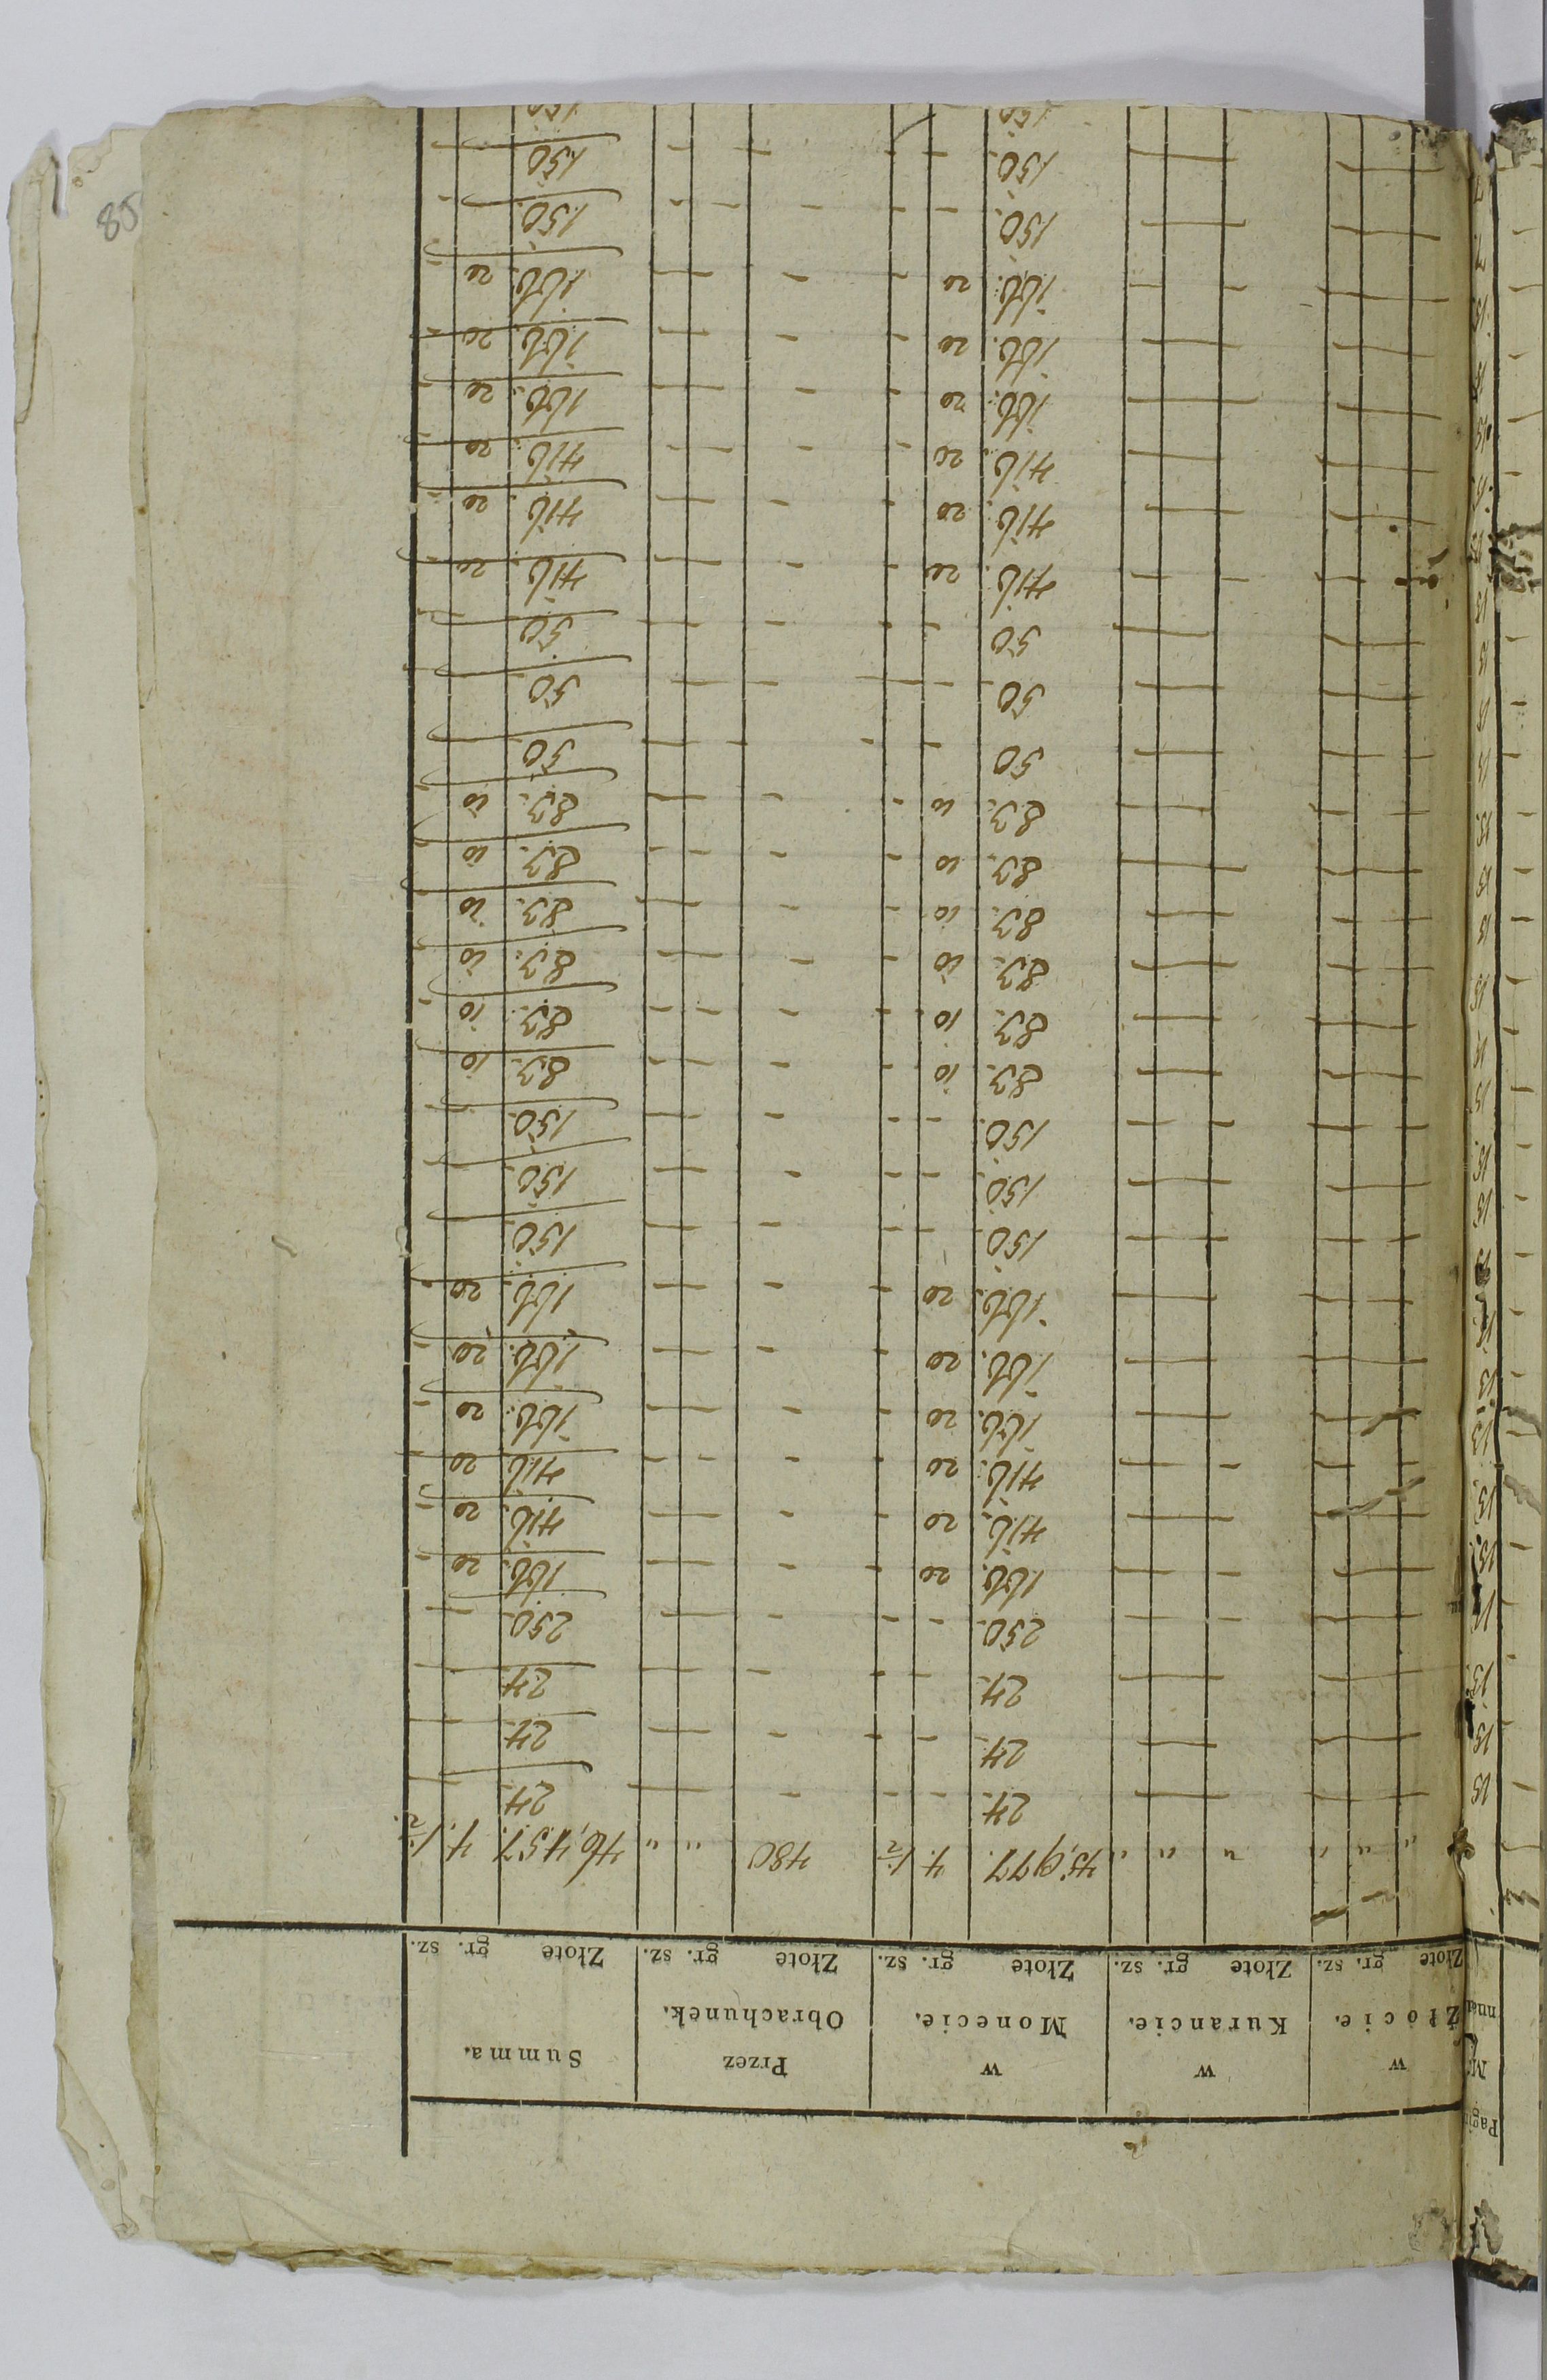 Pagi
w Złocie. w Kurancie. w Monecie. Przez Obrachunek. Summa.
Złote gr. sz. Złote gr. sz. Złote gr. sz. Złote gr. sz. Złote gr. sz.
" " " " " " 45,977. 4. 1/2 480 " " 46,457. 4. 1/2.
13 — — — — 24. - - - — — 24. — —
13 — — — — 24. - - - — — 24. — —
13. — — — — 24. - - - — — 24. — —
— — — — 250. - - - — — 250. — -
13. — — — — 166. 20 - - — — 166. 20 -
13. — — — — 416. 20 - - — — 416. 20 -
13 — — — — 416. 20 - - — — 416. 20 -
13 — — — — 166. 20 - - — — 166. 20 -
— — — — 166. 20 - - — — 166. 20 -
— — — — 166. 20 - - — — 166. 20 -
13 — — — — 150. - - - — — 150. —
15. — — — — 150. - - - — — 150. —
15 — — — — 150. - - - — — 150. —
— — — — 83. 10 - - — — 83. 10 -
15 — — — — 83. 10 - - — — 83. 10 -
15 — — — — 83. 10 - - — — 83. 10 -
15 — — — — 83. 10 - - — — 83. 10 -
15. — — — — 83. 10 - - — — 83. 10 -
15 — — — — 83. 10 - - — — 83. 10 -
— — — — 50 - - - — — 50 —
— — — — 50 - - - — — 50 —
13 — — — — 50 - - - — — 50 —
— — — — 416. 20 - - — — 416. 20 -
— — — — 416. 20 - - — — 416. 20 -
— — — — 416. 20 - - — — 416. 20 -
— — — — 166. 20 - - — — 166. 20 -
— — — — 166. 20 - - — — 166. 20 -
— — — — 166. 20 - - — — 166. 20 -
— — — — 150. - - - — — 150. —
— — — — 150. - - - — — 150. —
150 150
85